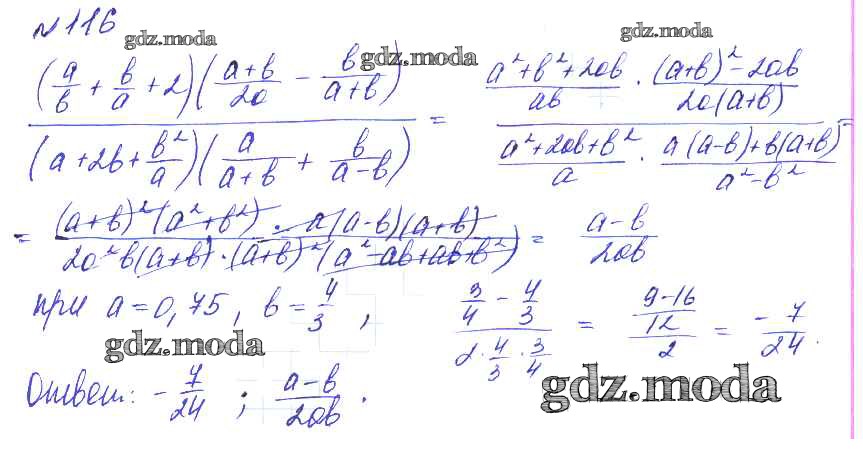 №116
gdz.moda gdz.moda gdz.moda
((a/b + b/a + 2)((a+b)/2a − b/(a+b))) / ((a+2b+b²/a)(a/(a+b) + b/(a−b))) = ((a²+b²+2ab)/ab · ((a+b)²−2ab)/(2a(a+b))) / ((a²+2ab+b²)/a · (a(a−b)+b(a+b))/(a²−b²)) =
= ((a+b)²(a²+b²) · a(a−b)(a+b)) / (2a²b(a+b)·(a+b)²(a²−ab+ab+b²)) = (a−b)/2ab
при a=0,75, b=4/3, (3/4 − 4/3)/(2·4/3·3/4) = ((9−16)/12)/2 = −7/24.
gdz.moda
Ответ: −7/24; (a−b)/2ab.
gdz.moda